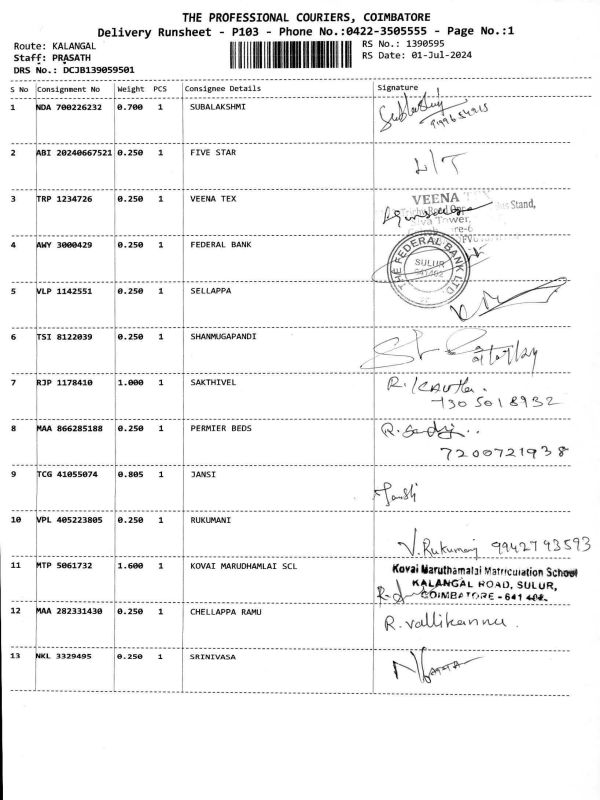 THE PROFESSIONAL COURIERS, COIMBATORE
Delivery Runsheet - P103 - Phone No.:0422-3505555 - Page No.:1
Route: KALANGAL
Staff: PRASATH
DRS No.: DCJB139059501
RS No.: 1390595
RS Date: 01-Jul-2024
S No Consignment No Weight PCS Consignee Details Signature
1 NDA 700226232 0.700 1 SUBALAKSHMI
2 ABI 20240667521 0.250 1 FIVE STAR
3 TRP 1234726 0.250 1 VEENA TEX VEENA TEX
4 AWY 3000429 0.250 1 FEDERAL BANK THE FEDERAL BANK LTD. SULUR 641402
5 VLP 1142551 0.250 1 SELLAPPA
6 TSI 8122039 0.250 1 SHANMUGAPANDI
7 RJP 1178410 1.000 1 SAKTHIVEL
7305018932
8 MAA 866285188 0.250 1 PERMIER BEDS
7200721938
9 TCG 41055074 0.805 1 JANSI
Jansi
10 VPL 405223805 0.250 1 RUKUMANI
V. Rukumani 9942793593
11 MTP 5061732 1.600 1 KOVAI MARUDHAMLAI SCL Kovai Maruthamalai Matriculation School
KALANGAL ROAD, SULUR,
COIMBATORE - 641 402.
12 MAA 282331430 0.250 1 CHELLAPPA RAMU R. Vallikannu.
13 NKL 3329495 0.250 1 SRINIVASA